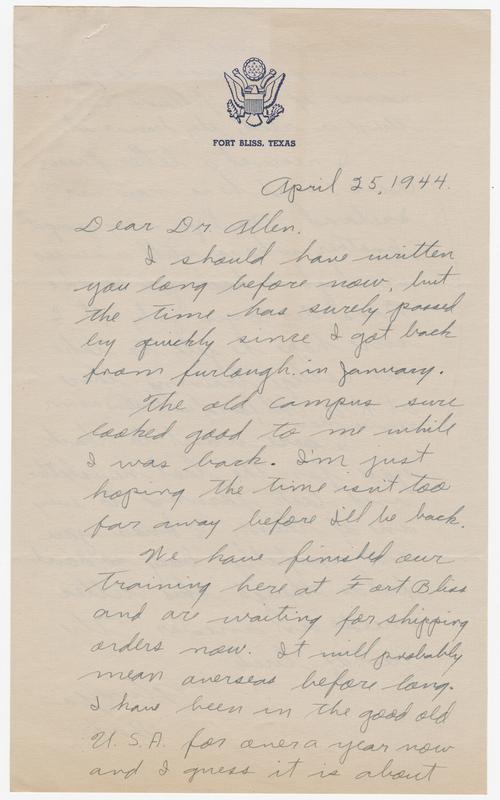 FORT BLISS, TEXAS
April 25, 1944.
Dear Dr. Allen.
I should have written
you long before now, but
the time has surely passed
by quickly since I got back
from furlough in January.
The old campus sure
looked good to me while
I was back. I'm just
hoping the time isn't too
far away before I'll be back.
We have finished our
training here at Fort Bliss
and are waiting for shipping
orders now. It will probably
mean overseas before long.
I have been in the good old
U.S.A. for over a year now
and I guess it is about